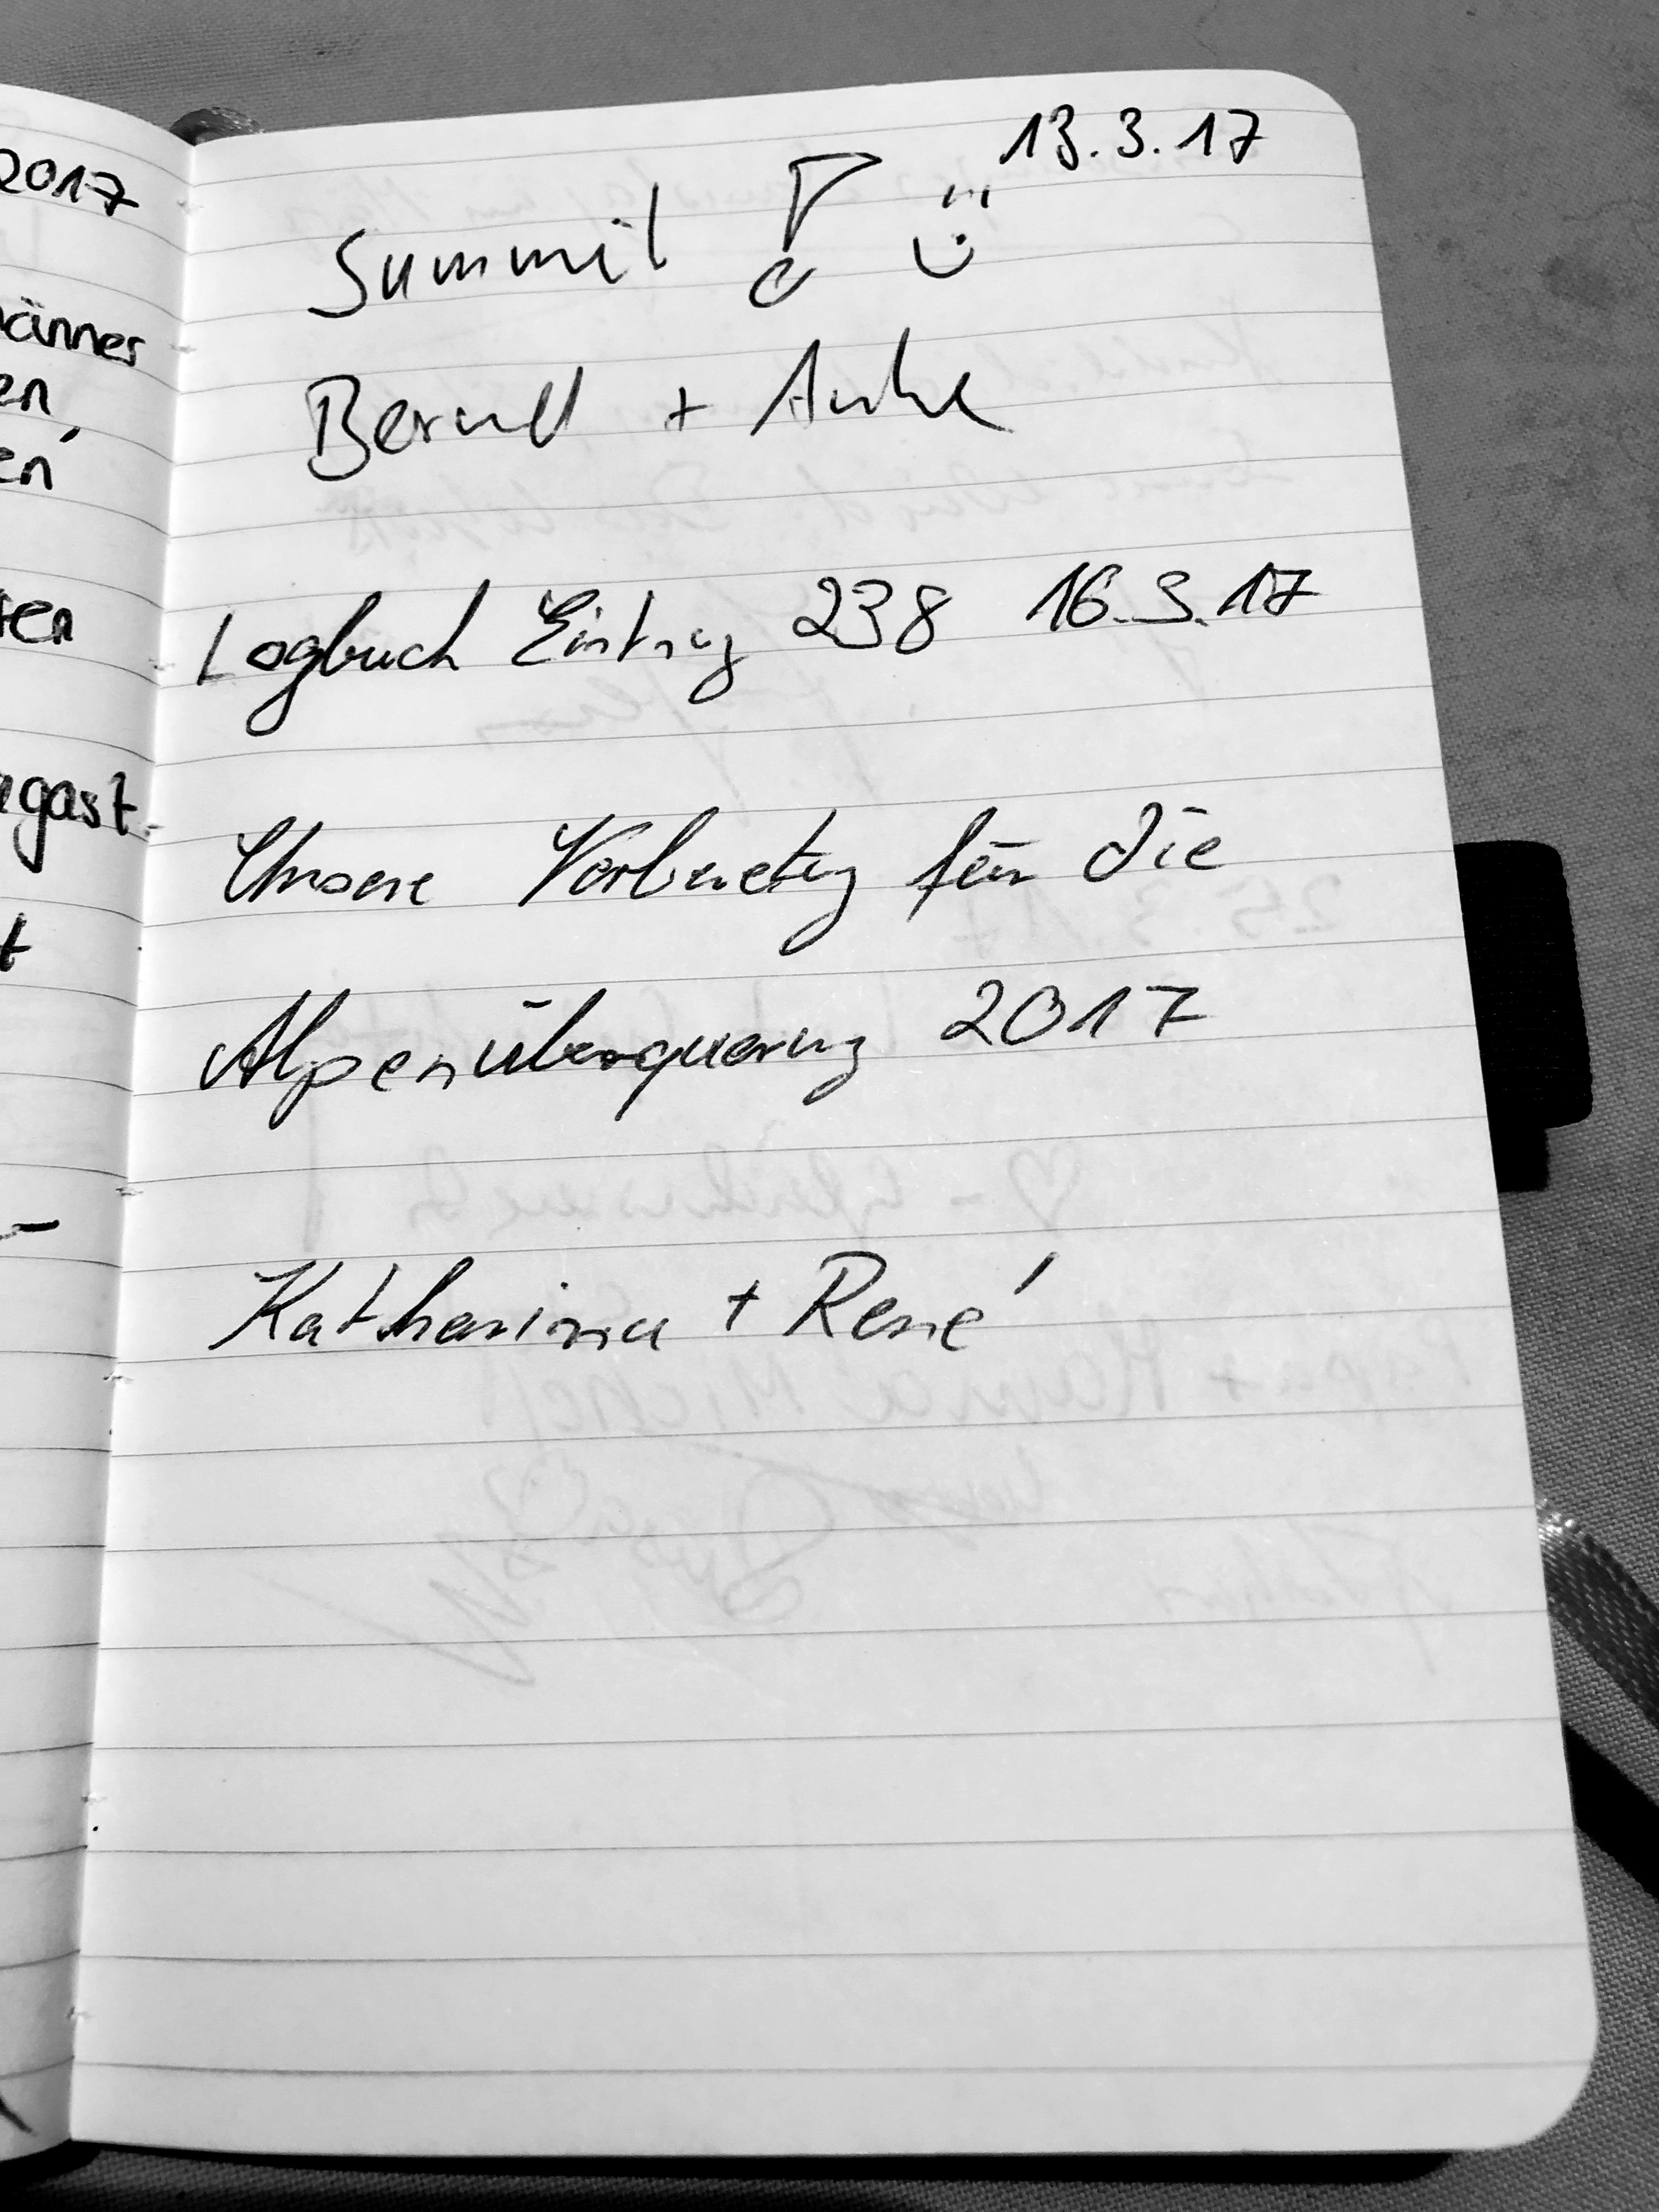 2017
änner
en
en
ten
gast
t
13.3.17
Summit !
Bernd + Anke
Logbuch Eintrag 238 16.3.17
Unsere Vorbereitung für die
Alpenüberquerung 2017
Katharina + René